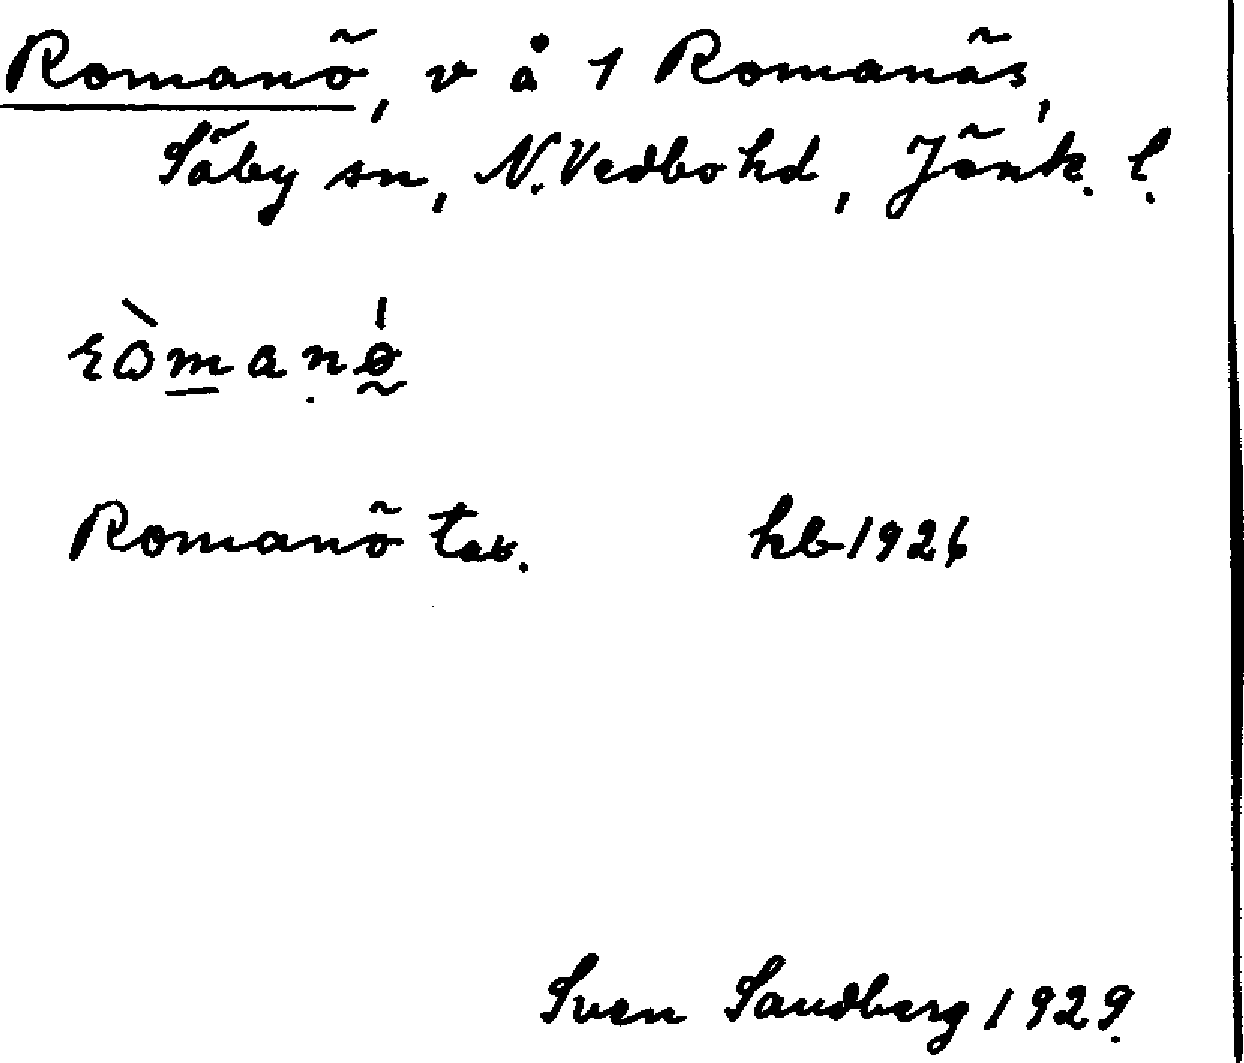 Romanö, v å 1 Romanäs,
Säby sn, N. Vedbo hd, Jönk. l.
Romanö tax. hb 1926
Sven Sandberg 1929.